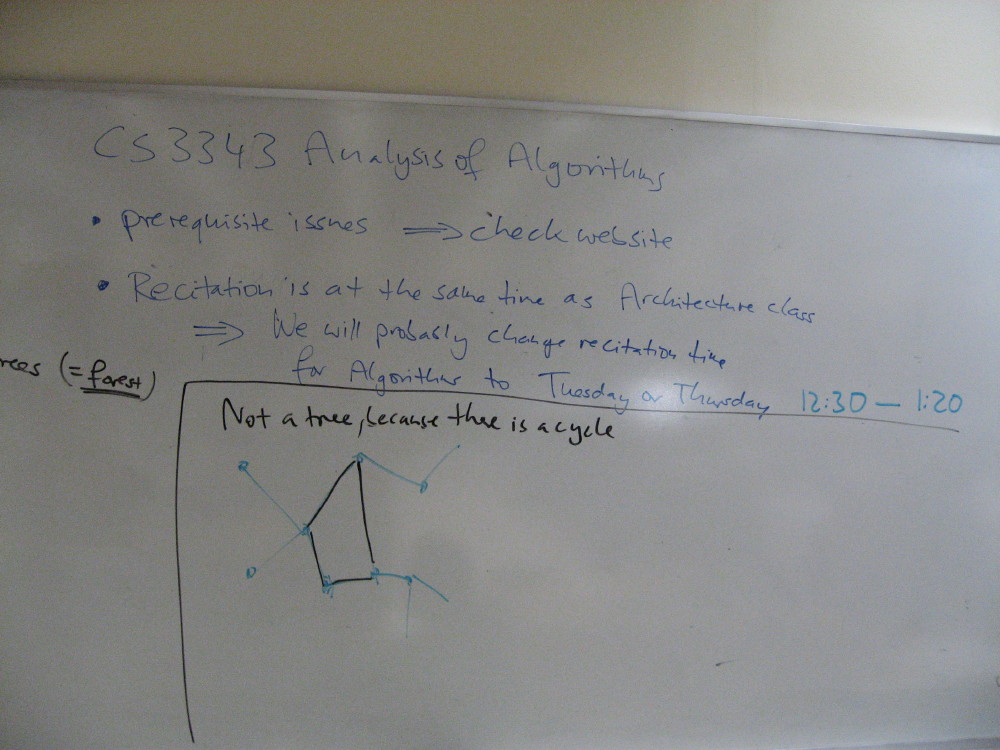 CS 3343 Analysis of Algorithms
• prerequisite issues ⟹ check website
• Recitation is at the same time as Architecture class
⟹ We will probably change recitation time
for Algorithms to Tuesday or Thursday 12:30 — 1:20
rees (= forest)
Not a tree, because there is a cycle